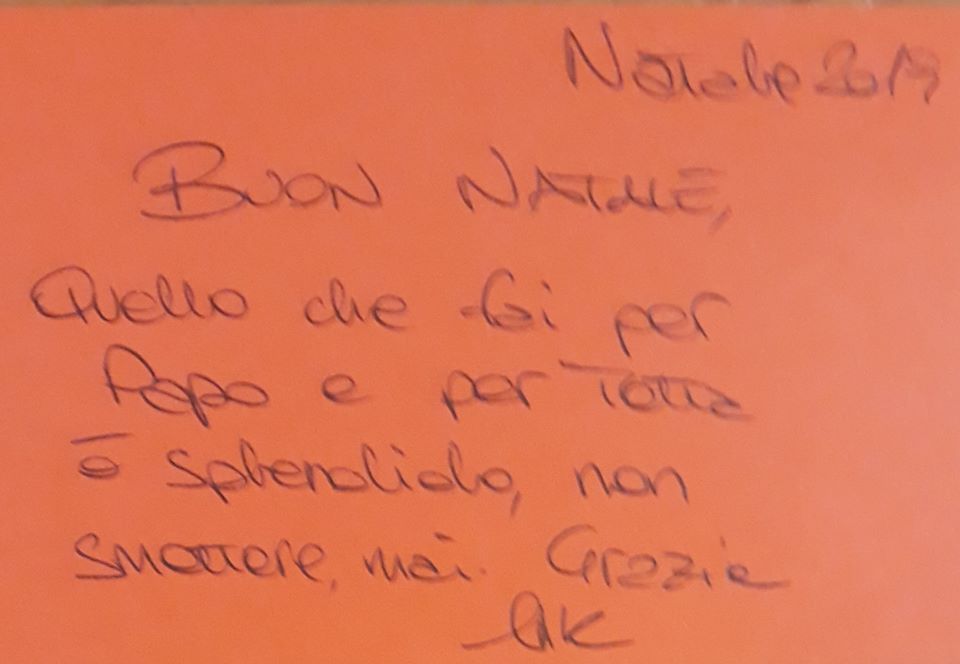 Natale 2019
BUON NATALE,
Quello che fai per
Papo e per Totta
è splendido, non
smettere, mai. Grazie